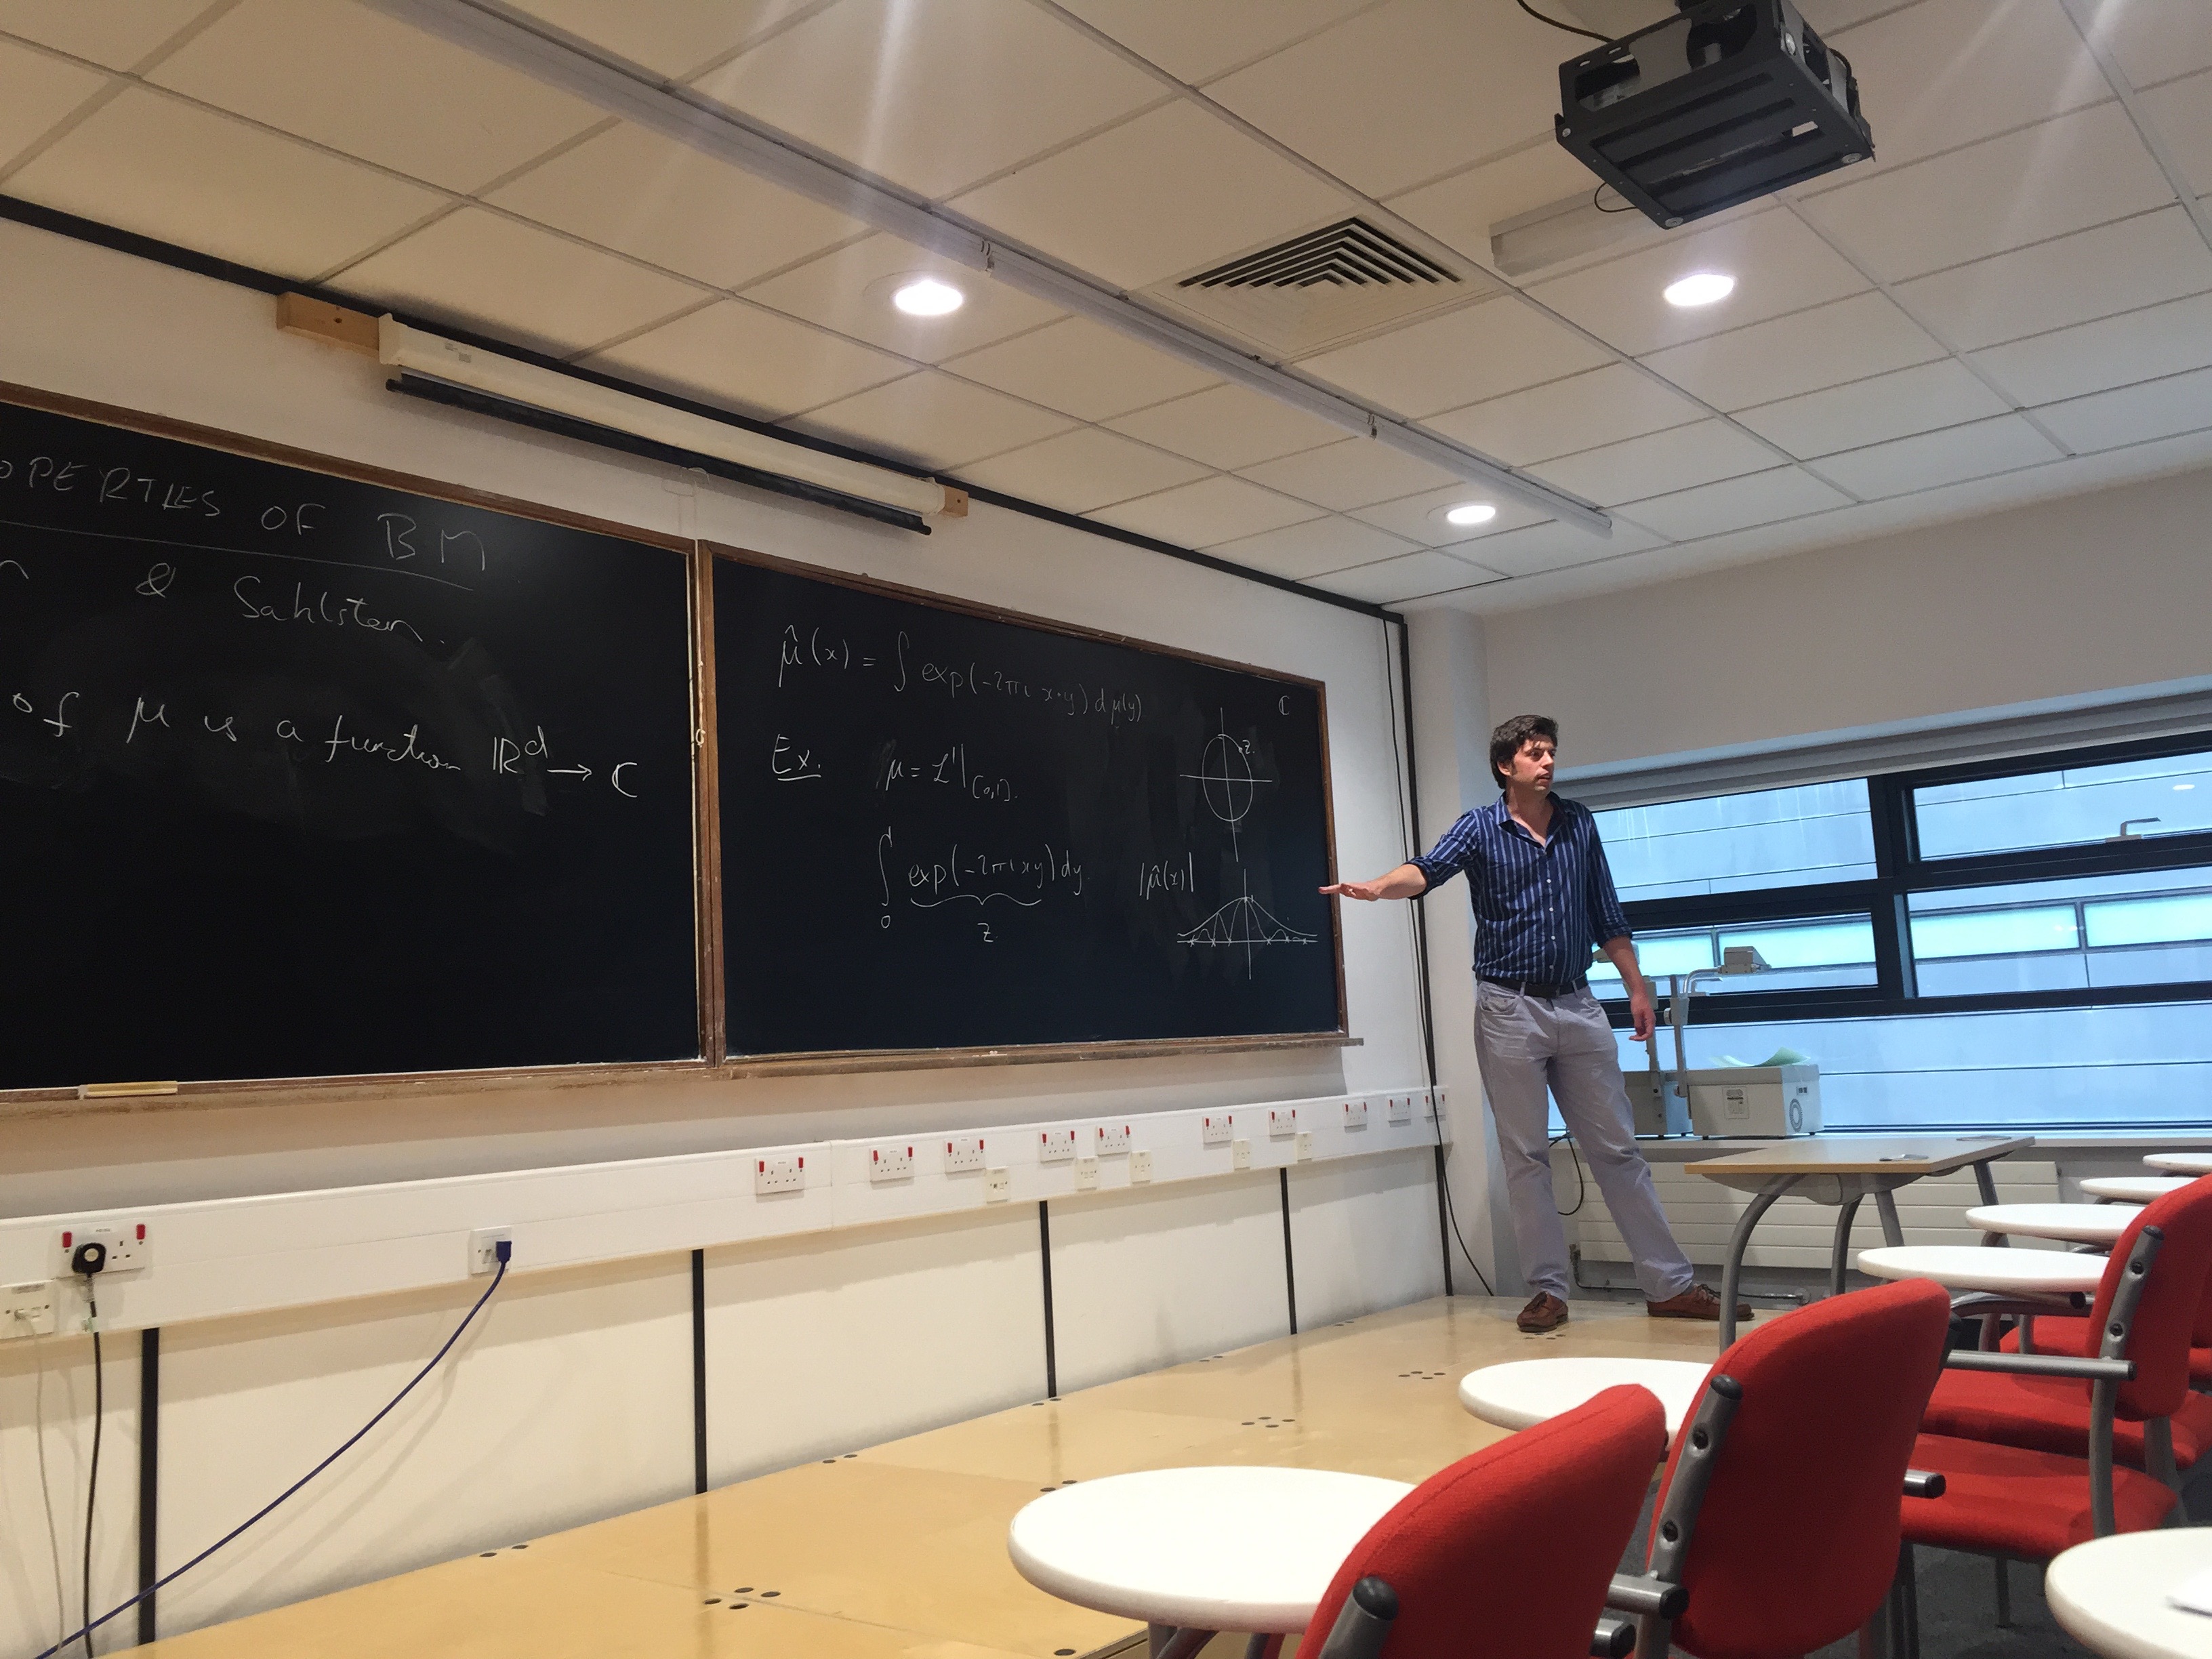 OPERTIES OF BM
& Sahlsten.
of μ is a function ℝᵈ → ℂ
μ̂(x) = ∫ exp(-2πi x·y) dμ(y)
Ex. μ = ℒ¹|[0,1].
∫₀¹ exp(-2πi xy) dy.
z.
ℂ
z.
|μ̂(x)|